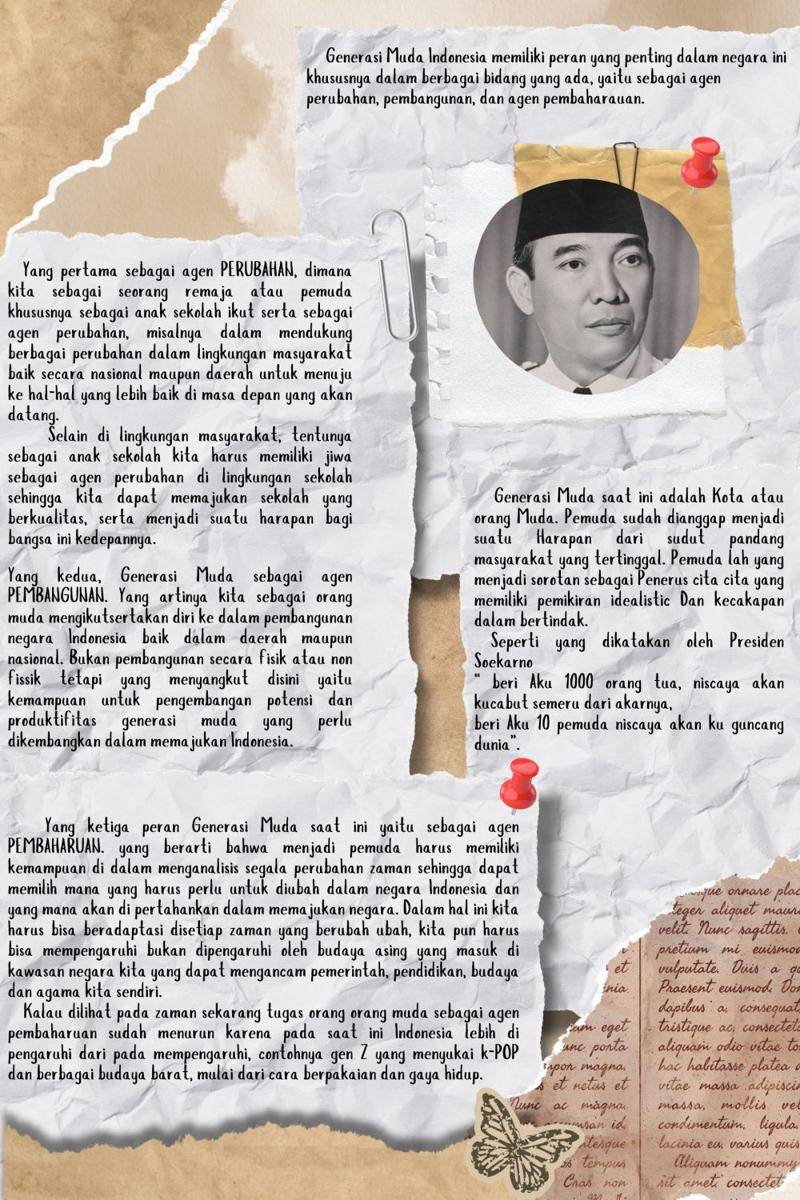 Generasi Muda Indonesia memiliki peran yang penting dalam negara ini
khususnya dalam berbagai bidang yang ada, yaitu sebagai agen
perubahan, pembangunan, dan agen pembaharauan.
Yang pertama sebagai agen PERUBAHAN, dimana
kita sebagai seorang remaja atau pemuda
khususnya sebagai anak sekolah ikut serta sebagai
agen perubahan, misalnya dalam mendukung
berbagai perubahan dalam lingkungan masyarakat
baik secara nasional maupun daerah untuk menuju
ke hal-hal yang lebih baik di masa depan yang akan
datang.
Selain di lingkungan masyarakat, tentunya
sebagai anak sekolah kita harus memiliki jiwa
sebagai agen perubahan di lingkungan sekolah
sehingga kita dapat memajukan sekolah yang
berkualitas, serta menjadi suatu harapan bagi
bangsa ini kedepannya.
Yang kedua, Generasi Muda sebagai agen
PEMBANGUNAN. Yang artinya kita sebagai orang
muda mengikutsertakan diri ke dalam pembangunan
negara Indonesia baik dalam daerah maupun
nasional. Bukan pembangunan secara fisik atau non
fissik tetapi yang menyangkut disini yaitu
kemampuan untuk pengembangan potensi dan
produktifitas generasi muda yang perlu
dikembangkan dalam memajukan Indonesia.
Generasi Muda saat ini adalah Kota atau
orang Muda. Pemuda sudah dianggap menjadi
suatu Harapan dari sudut pandang
masyarakat yang tertinggal. Pemuda lah yang
menjadi sorotan sebagai Penerus cita cita yang
memiliki pemikiran idealistic Dan kecakapan
dalam bertindak.
Seperti yang dikatakan oleh Presiden
Soekarno
“ beri Aku 1000 orang tua, niscaya akan
kucabut semeru dari akarnya,
beri Aku 10 pemuda niscaya akan ku guncang
dunia”.
Yang ketiga peran Generasi Muda saat ini yaitu sebagai agen
PEMBAHARUAN. yang berarti bahwa menjadi pemuda harus memiliki
kemampuan di dalam menganalisis segala perubahan zaman sehingga dapat
memilih mana yang harus perlu untuk diubah dalam negara Indonesia dan
yang mana akan di pertahankan dalam memajukan negara. Dalam hal ini kita
harus bisa beradaptasi disetiap zaman yang berubah ubah, kita pun harus
bisa mempengaruhi bukan dipengaruhi oleh budaya asing yang masuk di
kawasan negara kita yang dapat mengancam pemerintah, pendidikan, budaya
dan agama kita sendiri.
Kalau dilihat pada zaman sekarang tugas orang orang muda sebagai agen
pembaharuan sudah menurun karena pada saat ini Indonesia lebih di
pengaruhi dari pada mempengaruhi, contohnya gen Z yang menyukai k-POP
dan berbagai budaya barat, mulai dari cara berpakaian dan gaya hidup.
et
eget
porta
magna.
et netus et
Nunc ac magna.
id
tempus
Cras non
ornare
aliquet
velit. Nunc sagittis.
pretium mi
vulputate. Duis a
Praesent euismod.
dapibus a,
tristique ac,
aliquam odio vitae
hac habitasse platea
vitae massa
massa, mollis
condimentum, ligula.
lacinia eu, varius
Aliquam nonummy
sit amet